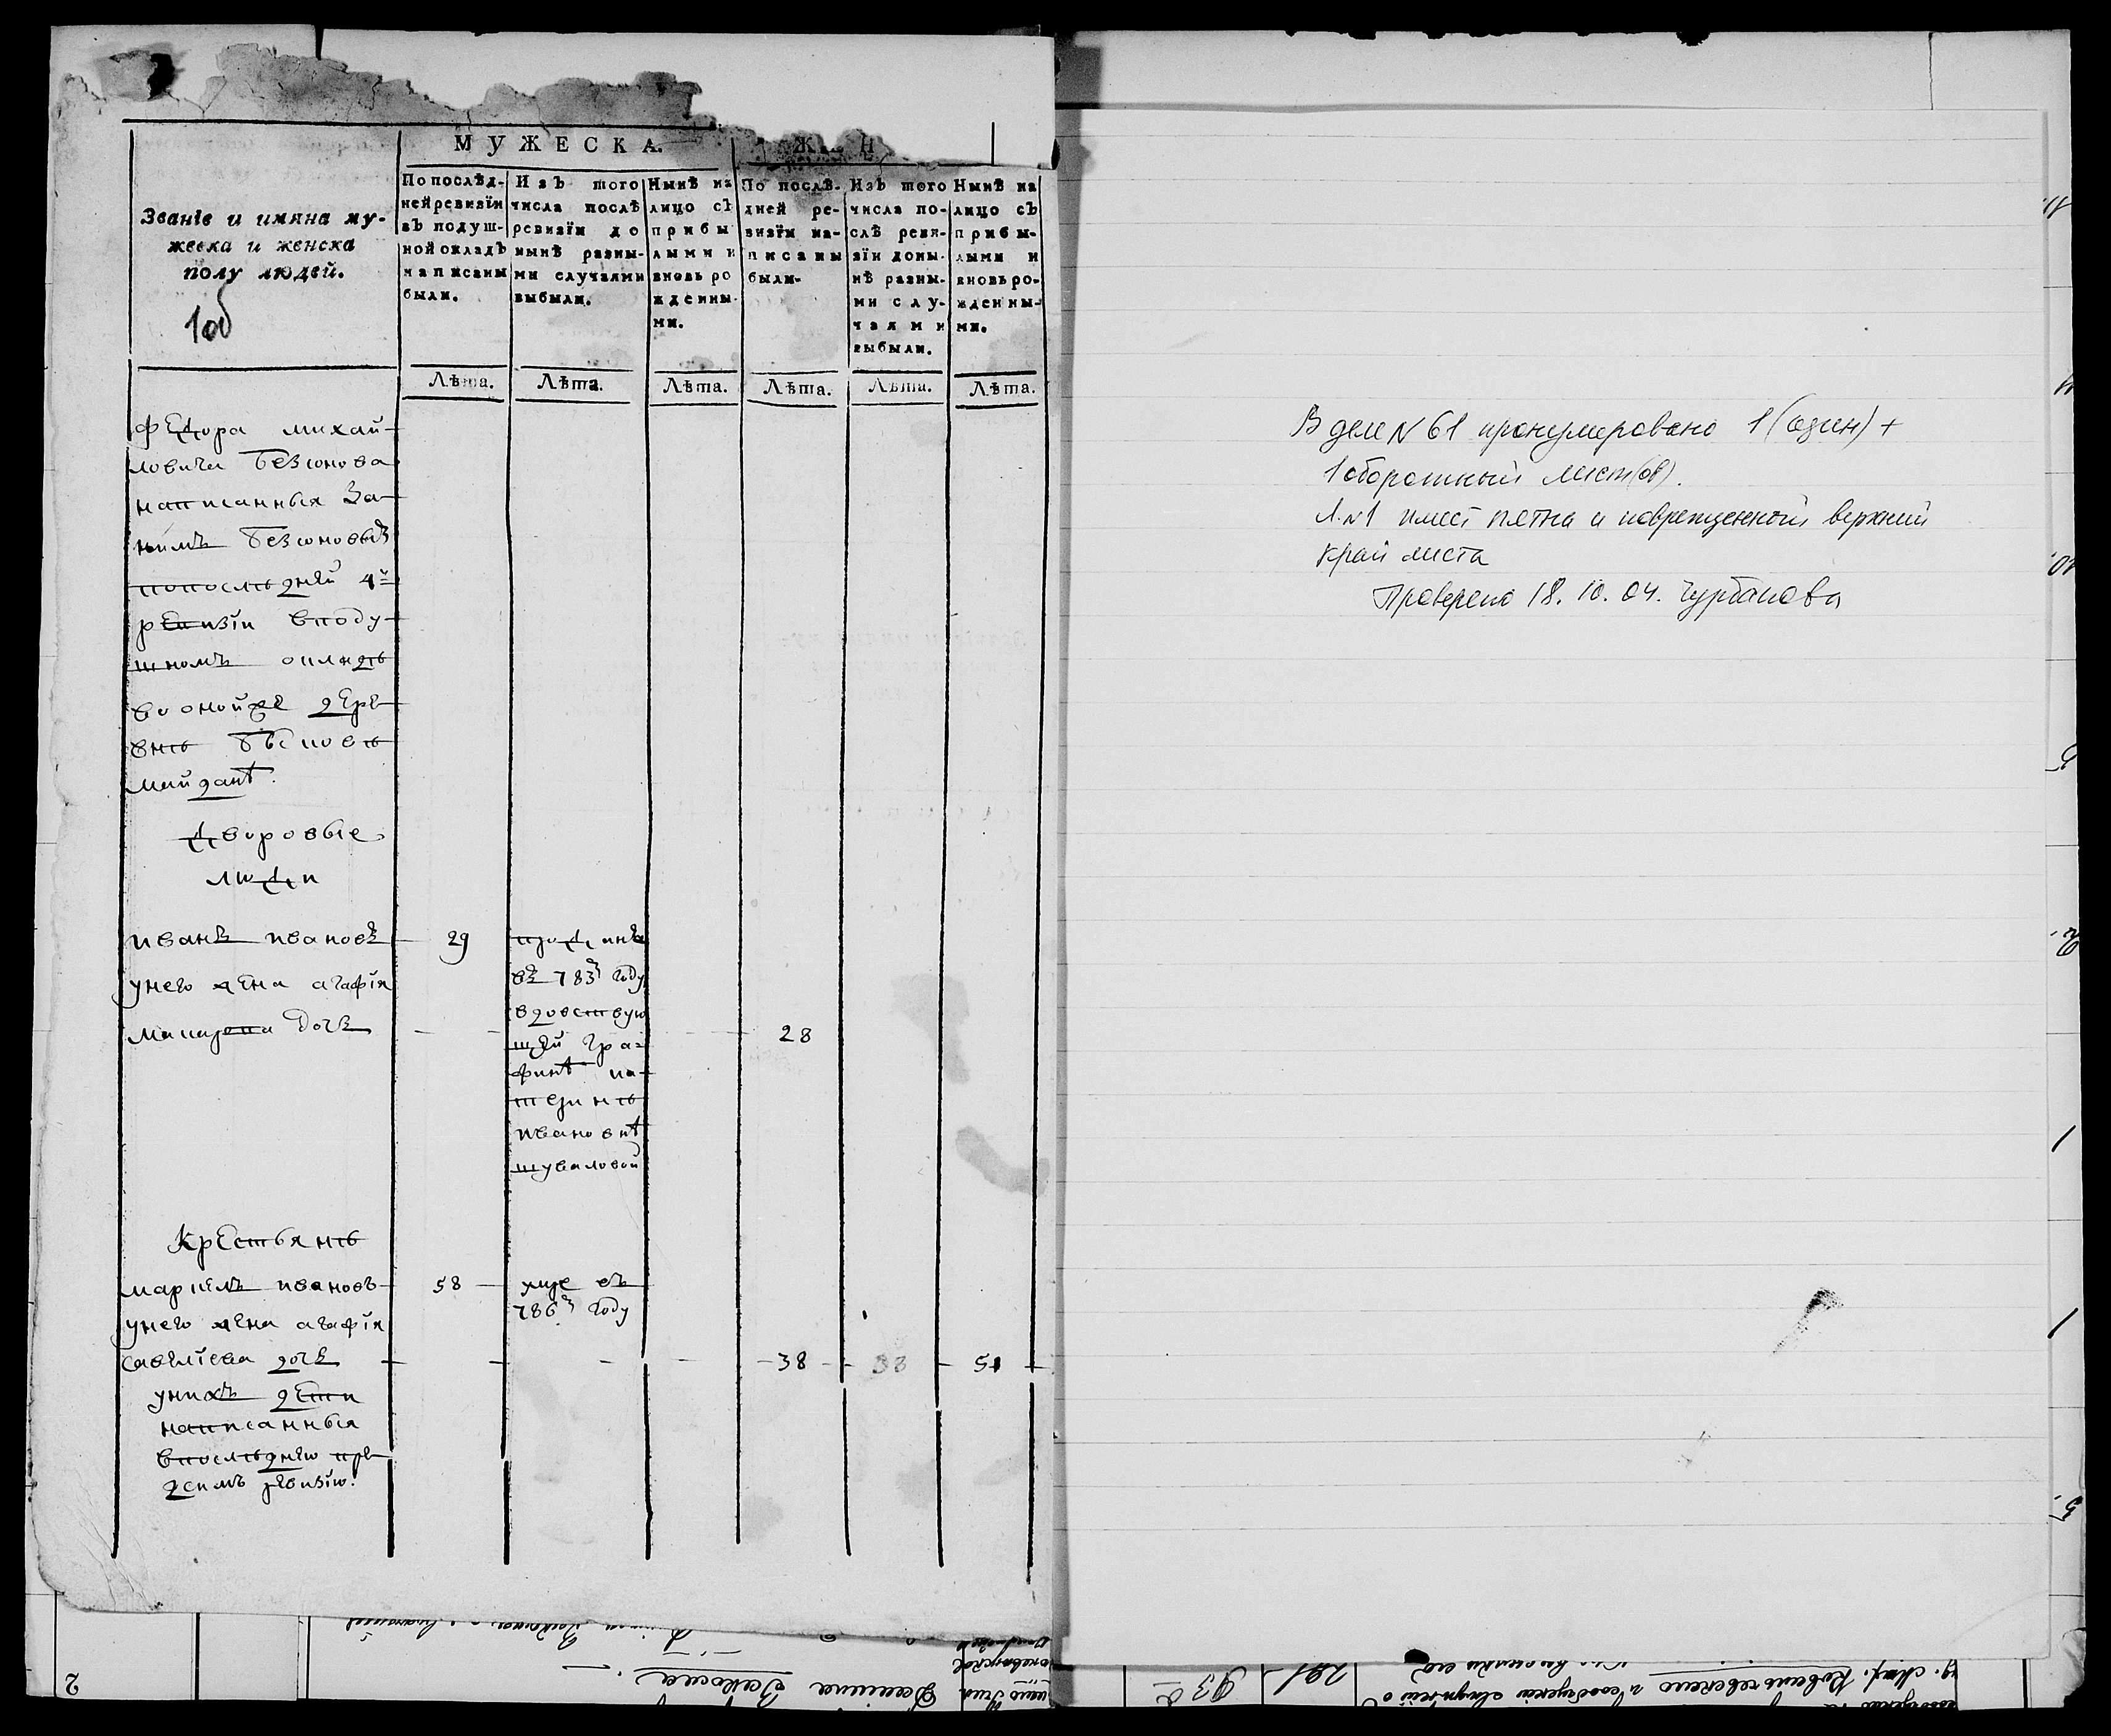 МУЖЕСКА.
Ж Н
Званїе и имяна му-
жеска и женска
полу людей.
1об
По послѣд-
ней ревизїи
въ подуш-
ной окладъ
написаны
были.
Изъ того
числа послѣ
ревизїи до
нынѣ разны-
ми случаями
выбыли.
Нынѣ на
лицо съ
прибы
лыми и
вновь ро
жденны-
ми.
По послѣ-
дней ре-
визїи на-
писаны
были.
Изъ того
числа по-
слѣ реви-
зїи доны-
нѣ разны-
ми слу-
чаями
выбыли.
Нынѣ на
лицо съ
прибы-
лыми и
вновь ро-
жденны-
ми.
Лѣта. Лѣта. Лѣта. Лѣта. Лѣта. Лѣта.
Федора михай-
ловича Безсонова
написанныя За-
нимъ безсоновыъ
попоследней 4й
ревизїи вподу-
шномъ окладе
вооной же дере-
вне
майданѣ.
Дворовые
люди
иванъ ивановъ 29
унего жена агафїя
макарова дочъ 28
проданъ
въ 783м году
вдовствую
щей гра-
финѣ ка-
терине
ивановнѣ
шуваловой
Крестьяне
ивановъ 58
умре въ
786м году
унего жена агафїя
савелїева дочъ 38 38 51
унихъ дети
написанныя
впоследнюю пре-
дсимъ ревизїю.
В деле N 61 пронумеровано 1 (один) +
1 оборотный лист(ов).
Л. N1 имеет пятна и поврежденной верхний
край листа
Проверено 18.10.04. Чурбанова
2
291